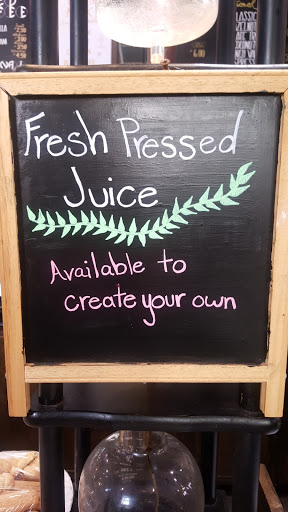 Fresh Pressed
Juice
Available to
create your own